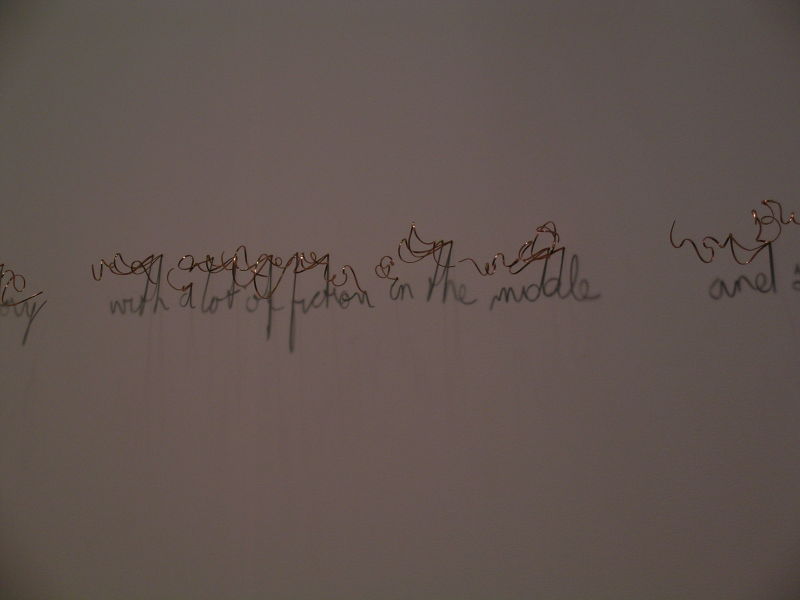 with a lot of fiction in the middle and